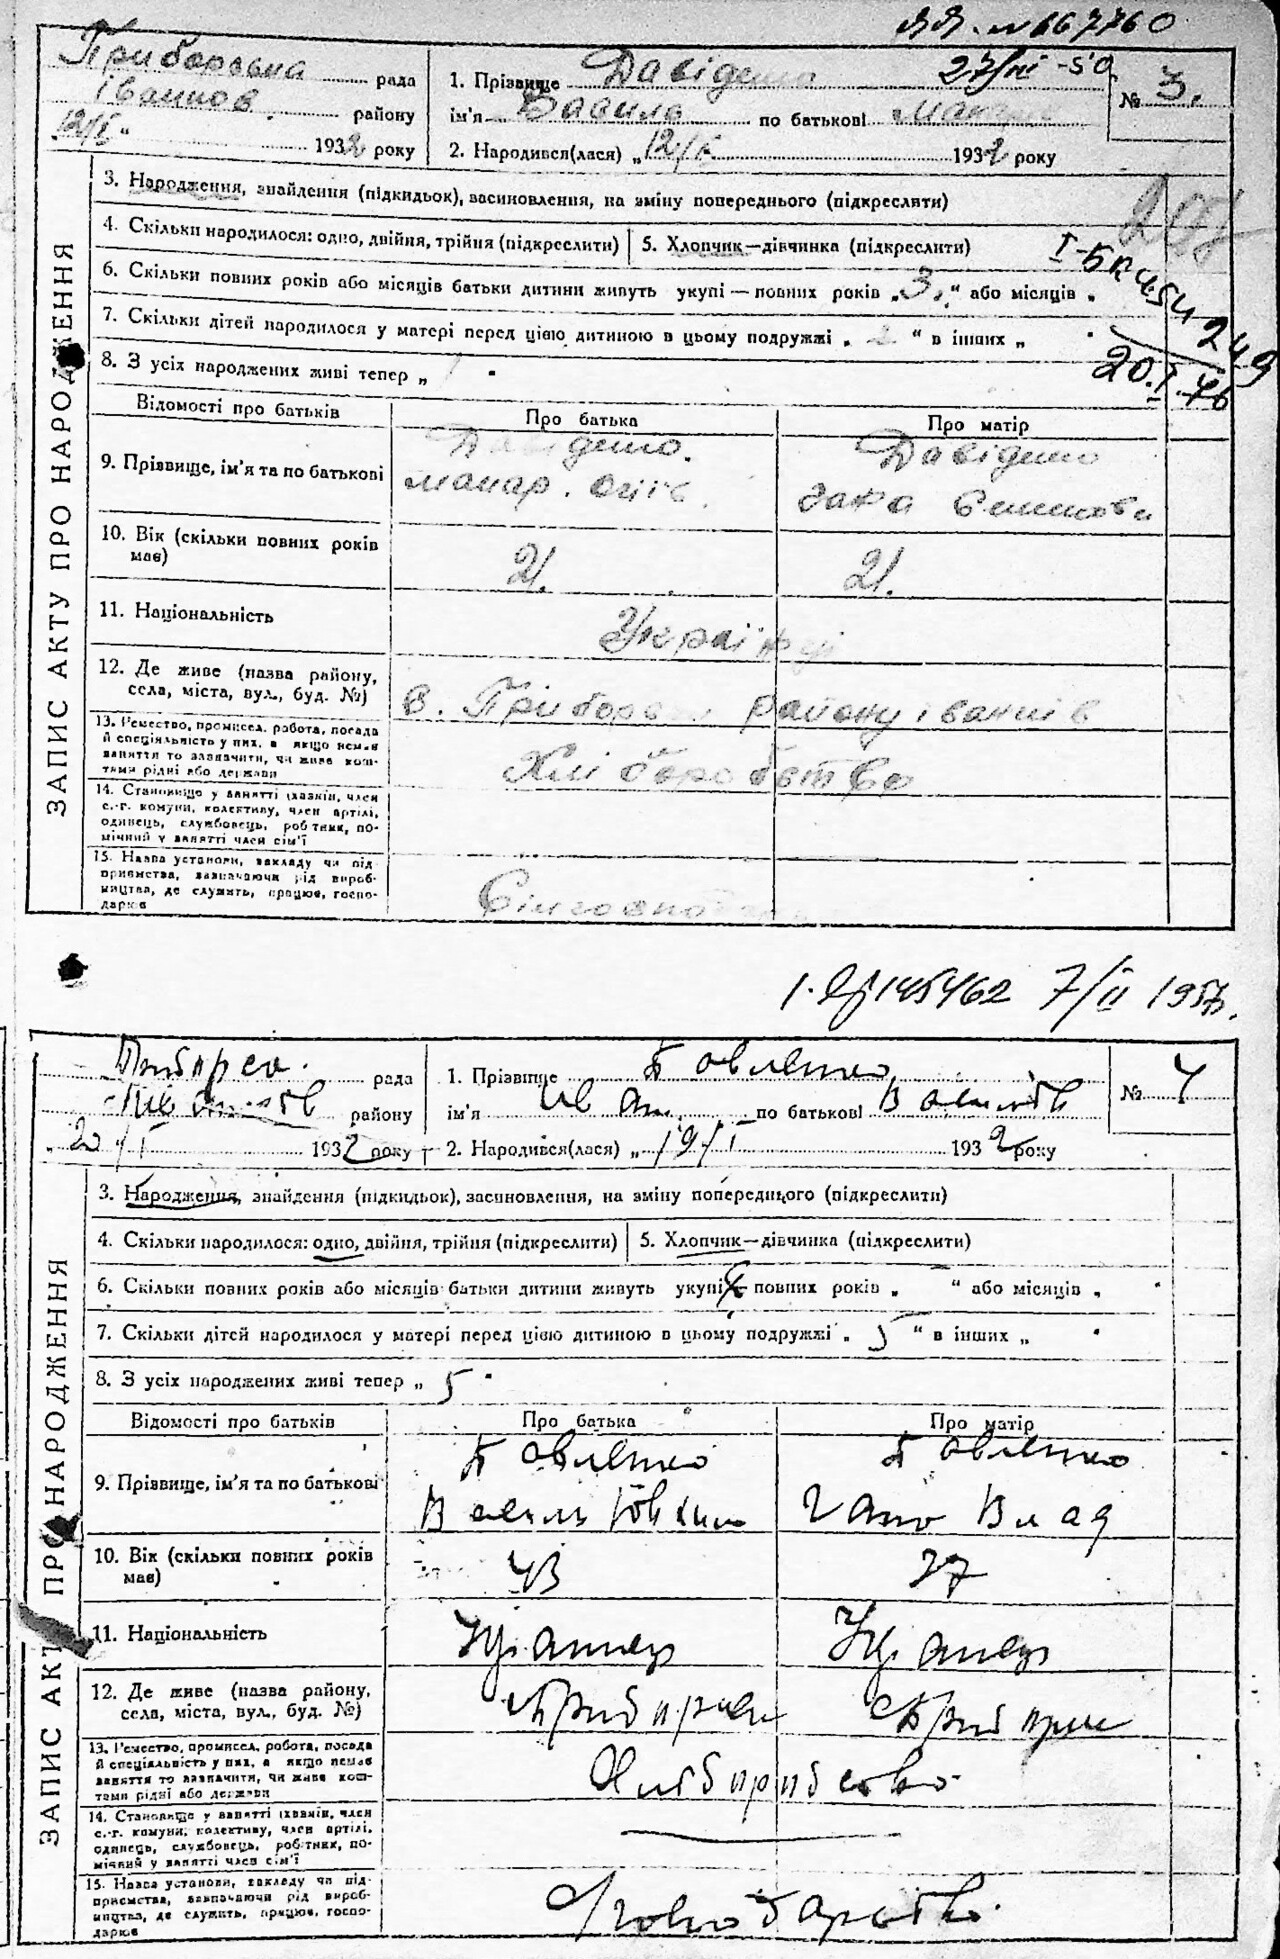 № 667760
27/III-50
Приборська рада
Іванков району
12/I 1932 року
1. Прізвище Давіденко
ім'я Василь по батькові Макар
2. Народився(лася) „12/I 1932 року
№ 3.
ЗАПИС АКТУ ПРО НАРОДЖЕННЯ
3. Народження, знайдення (підкидьок), засиновлення, на зміну попереднього (підкреслити)
4. Скільки народилося: одно, двійня, трійня (підкреслити)
5. Хлопчик—дівчинка (підкреслити)
6. Скільки повних років або місяців батьки дитини живуть укупі — повних років „3.“ або місяців „
7. Скільки дітей народилося у матері перед цією дитиною в цьому подружжі „2“ в інших „
8. З усіх народжених живі тепер „
249
20.I.76
Відомості про батьків
Про батька
Про матір
9. Прізвище, ім'я та по батькові
Давіденко
Макар
Давіденко
10. Вік (скільки повних років має)
21.
21.
11. Національність
Українці
12. Де живе (назва району, села, міста, вул., буд. №)
с. Приборськ району Іванків
13. Ремество, промисел, робота, посада
й спеціяльність у них, а якщо немає
заняття то зазначити, чи живе кош-
тами рідні або держави
Хліборобство
14. Становище у занятті (хазяїн, член
с.-г. комуни, колективу, член артілі,
одинець, службовець, робітник, по-
мічний у занятті член сім'ї
15. Назва установи, закладу чи під-
приємства, зазначаючи рід вироб-
ництва, де служить, працює, госпо-
дарює
145462 7/II 195
рада
району
20/I 1932 року
1. Прізвище Павленко
ім'я Іван по батькові Васильов
2. Народився(лася) „19/I 1932 року
№ 4
ЗАПИС АКТ ПРО НАРОДЖЕННЯ
3. Народження, знайдення (підкидьок), засиновлення, на зміну попереднього (підкреслити)
4. Скільки народилося: одно, двійня, трійня (підкреслити)
5. Хлопчик—дівчинка (підкреслити)
6. Скільки повних років або місяців батьки дитини живуть укупі — повних років „ “ або місяців „
7. Скільки дітей народилося у матері перед цією дитиною в цьому подружжі „5“ в інших „
8. З усіх народжених живі тепер „5“
Відомості про батьків
Про батька
Про матір
9. Прізвище, ім'я та по батькові
Павленко
Василь
Павленко
Ганна Влад
10. Вік (скільки повних років має)
43
37
11. Національність
Українец
Українец
12. Де живе (назва району, села, міста, вул., буд. №)
13. Ремество, промисел, робота, посада
й спеціяльність у них, а якщо немає
заняття то зазначити, чи живе кош-
тами рідні або держави
Хліборобство
14. Становище у занятті (хазяїн, член
с.-г. комуни, колективу, член артілі,
одинець, службовець, робітник, по-
мічний у занятті член сім'ї
15. Назва установи, закладу чи під-
приємства, зазначаючи рід вироб-
ництва, де служить, працює, госпо-
дарює